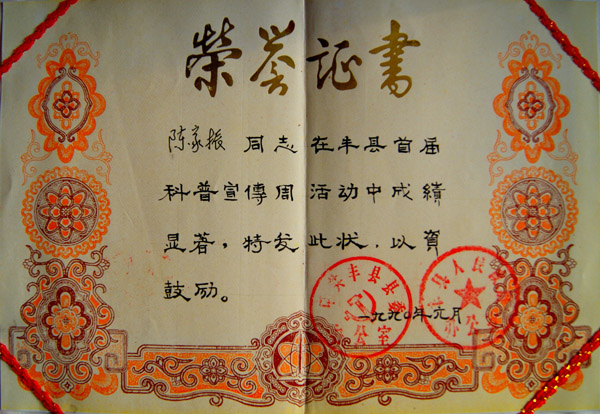 荣誉证书
陈家振 同志在丰县首届
科普宣傳周活动中成绩
显著，特发此状，以资
鼓励。
中共丰县县委
办公室
县人民
办公
一九九〇年六月